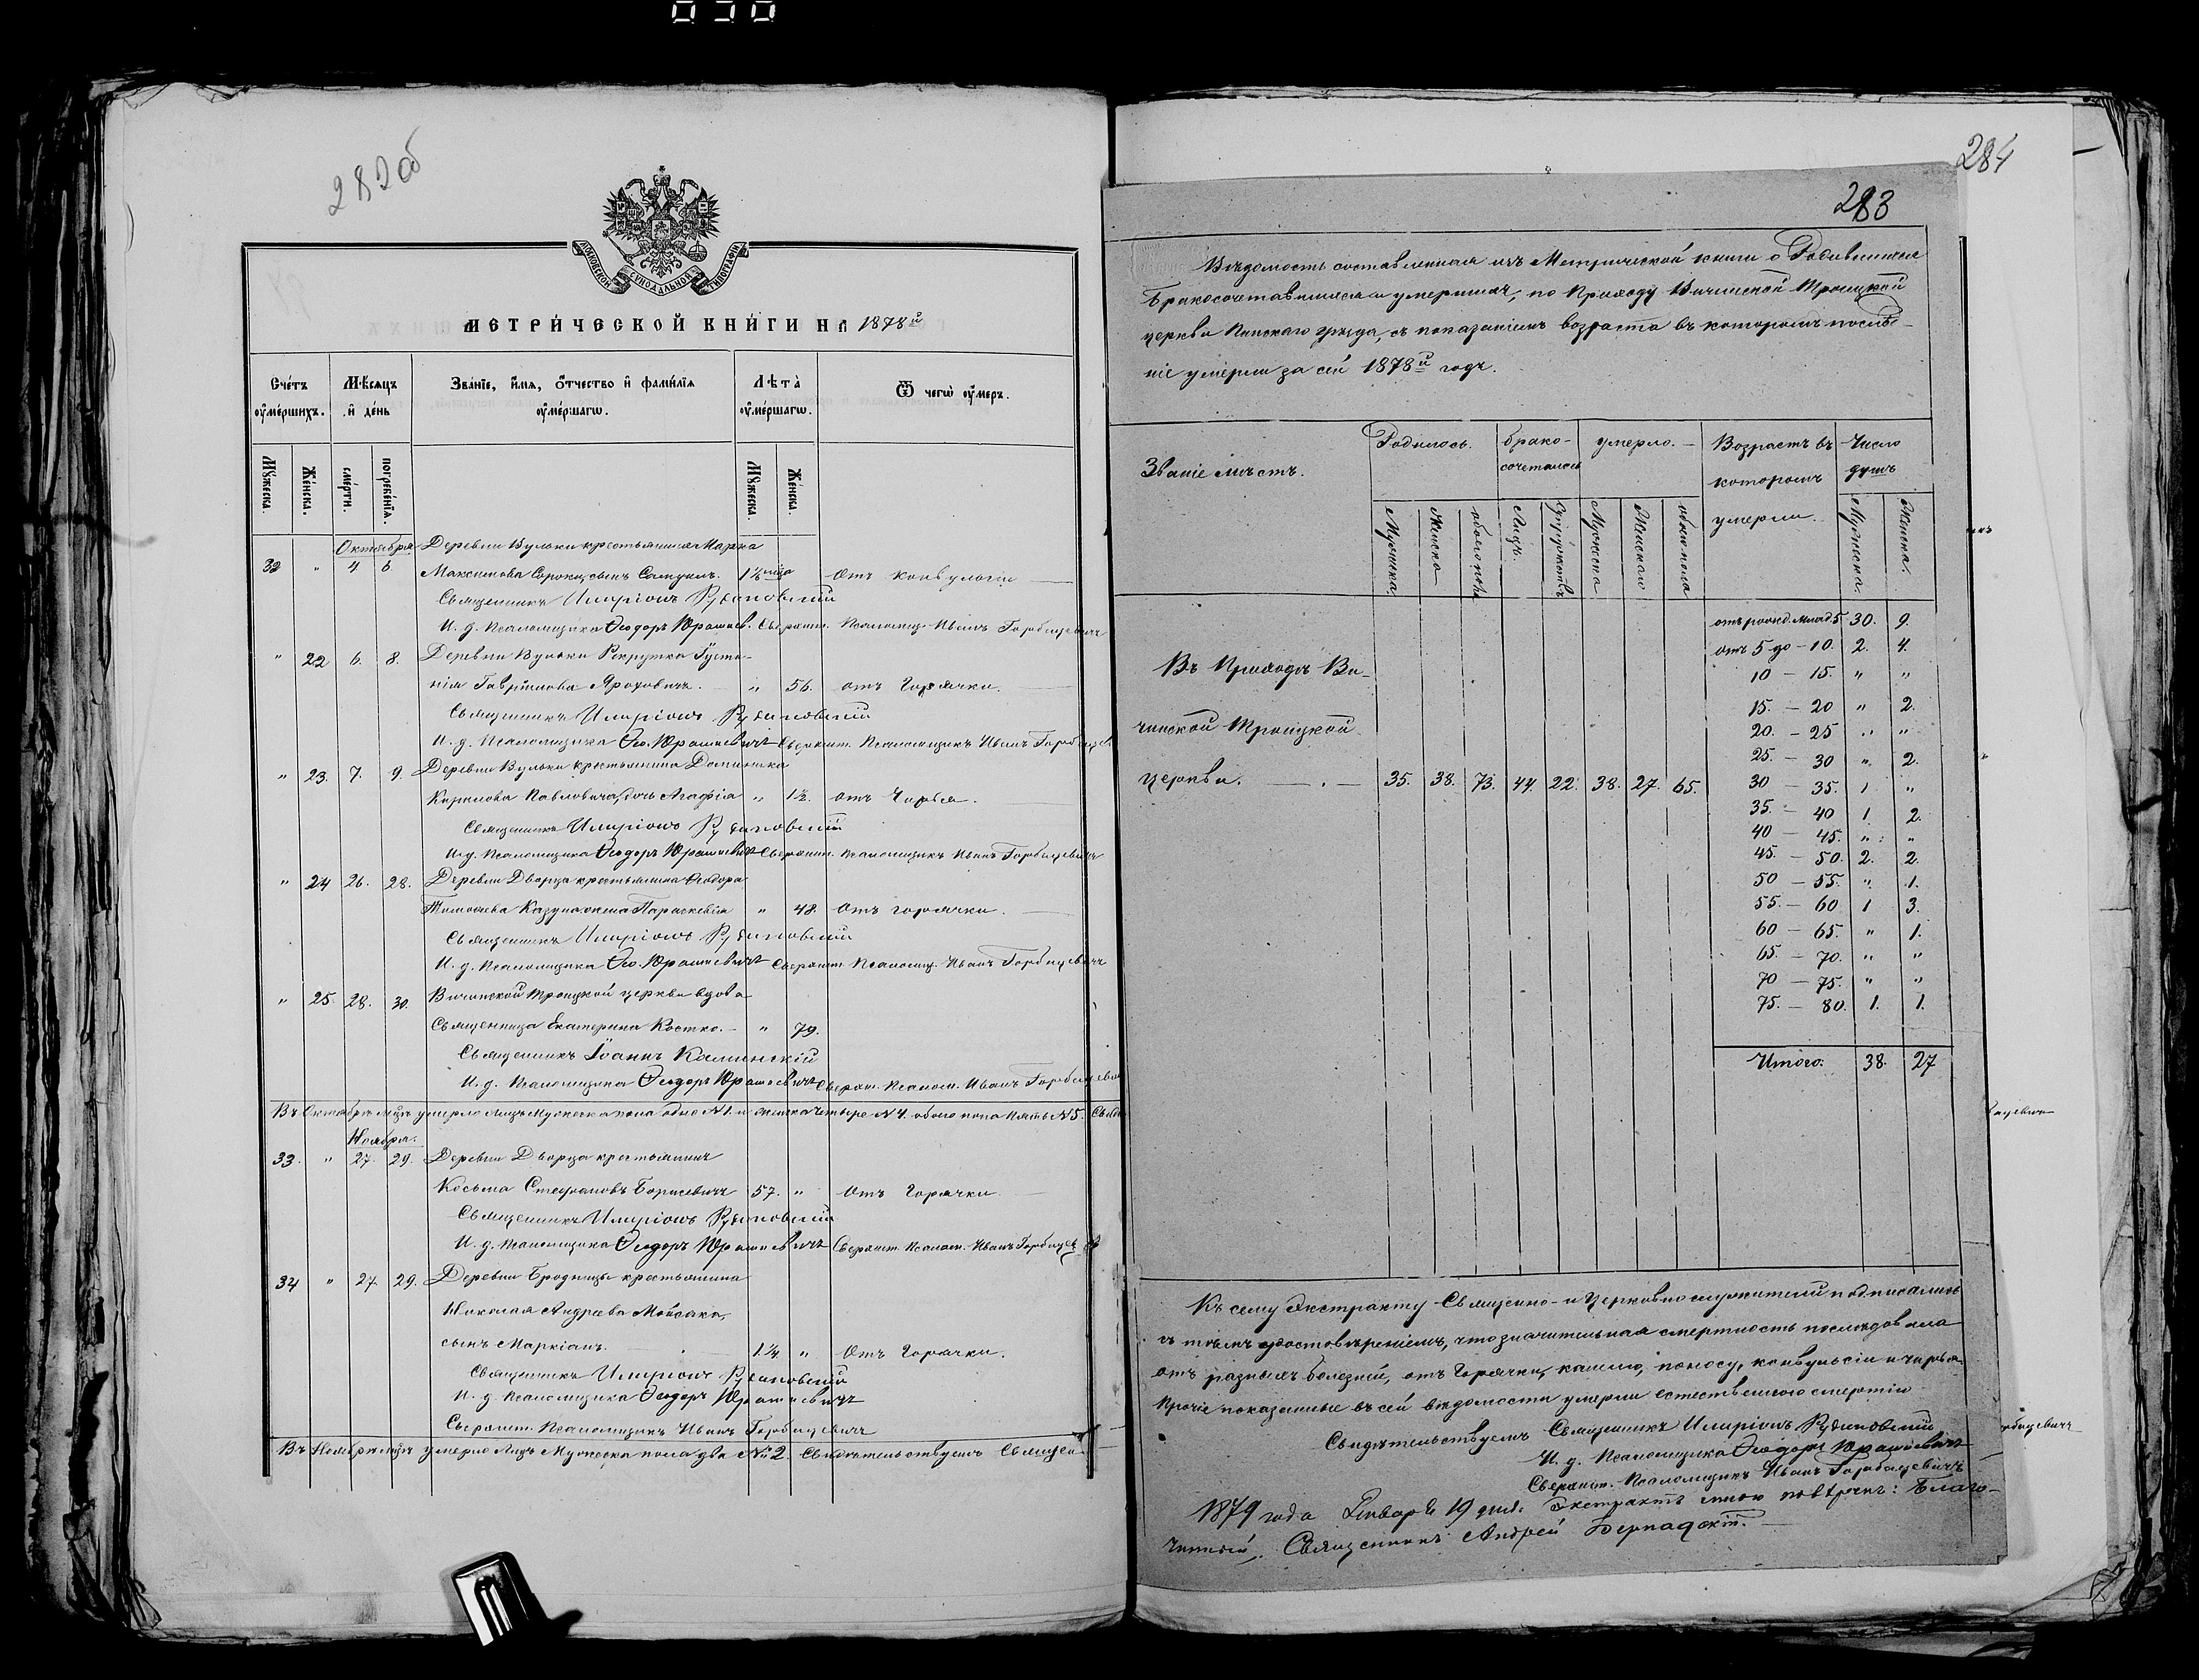 030
282об
МОСКОВСКОЙ СУНОДАЛЬНОЙ ТИПОГРАФІИ
МЕТРИ́ЧЕСКОЙ КНИ́ГИ НА 1878й
Счетъ оумершихъ. Мѣсяцъ и день Званіе, имя, отчество и фамилія оумершагѡ. Лѣта оумершагѡ. Ѿ чегѡ оумеръ.
Мужеска Женска. смерти. погребенія. Мужеска. Женска.
Октября Деревни Вульки крестьянина Марка
32 " 4 6 Максимова Сороки, сынъ Самуилъ. 1½ мѣс Отъ конвульсіи
Священникъ Иларіонъ Рубановскій
И. д. Псаломщика Ѳеодоръ Юрашев. Сверхшт. Псаломщ. Иванъ Горбацевичъ
" 22 6. 8. Деревни Вульки Рекрутка Густи-
нія Гаврілова Ярохович. " 56. отъ Горячки.
Священникъ Иларіонъ Рубановскій
И. д. Псаломщика Ѳео. Юрашевичъ Сверхшт. Псаломщикъ Иванъ Горбацев
" 23. 7. 9. Деревни Вульки крестьянина Доминика
Кирилова Павловича, дочь Агафія " 1½. отъ Чирья.
Священникъ Иларіонъ Рубановскій
И. д. Псаломщика Ѳеодоръ Юрашевичъ Сверхшт. Псаломщикъ Иванъ Горбацевичъ
" 24 26. 28. Деревни Дворца крестьянина Ѳеодора
Тимоѳева Казуна жена Параскевія " 48. отъ горячки.
Священникъ Иларіонъ Рубановскій
И. д. Псаломщика Ѳео. Юрашевичъ Сверхшт. Псаломщ. Иванъ Горбацевичъ
" 25. 28. 30. Вичинской Троицкой церкви вдова
Священница Екатерина Костко. " 79.
Священникъ Іоаннъ Каминскій
И. д. Псаломщика Ѳеодоръ Юрашевичъ Сверхш. Псалом. Иванъ Горбацевич
Въ Октябрѣ мцѣ умерло лицъ Мужеска пола одно №1. и женска четыре №4. обоего пола пять №5. Свидѣ
Ноября.
33. " 27. 29. Деревни Дворца крестьянинъ
Косьма Стефановъ Борисевичъ 57. " отъ Горячки.
Священникъ Иларіонъ Рубановскій
И. д. Псаломщика Ѳеодоръ Юрашевичъ Сверхшт. Псалом. Иванъ Горбацев
34 " 27. 29. Деревни Бродницы крестьянина
Николая Андреева Мойсака,
сынъ Маркіанъ. 1¼ " Отъ Горячки.
Священникъ Иларіонъ Рубановскій
И. д. Псаломщика Ѳеодоръ Юрашевичъ
Сверхшт. Псаломщикъ Иванъ Горбацевичъ
Въ Ноябрѣ мцѣ умерло лицъ Мужеска пола два №2. Свидѣтельствуемъ Священ
284
283
Вѣдомость составленная изъ Метрической книги о Родившихся
Бракосочетавшихся и умершихъ, по Приходу Вичинской Троицкой
церкви Пинскаго уѣзда, съ показаніемъ возраста въ которомъ послѣд-
ніе умерли за сей 1878й годъ.
Званіе мѣстъ. Родилось. брако-сочеталось умерло. Возрастъ въ которомъ умерли. Число душъ
Мужеска. Женска обоего пола Лицъ. Супружествъ Мужеска Женскаго обоего пола Мужеска. Женска.
отъ рожд. млад. 5 30. 9.
отъ 5 до 10. 2. 4.
10 – 15. " "
15. – 20 " 2.
20. – 25 " "
25. – 30 " 2.
30 – 35. 1. "
35. – 40 1. 2.
40 – 45. " "
45. – 50. 2. 2.
50 – 55. " 1.
55. – 60 1 3.
60 – 65. " 1.
65. – 70. " "
70 – 75. " "
75. – 80. 1. 1.
Итого: 38. 27
Въ Приходѣ Ви-
чинской Троицкой
церкви. 35. 38. 73. 44. 22. 38. 27. 65.
Къ сему Экстракту Священно- и Церковнослужители подписались
съ тѣмъ удостовѣреніемъ, что значительная смертность послѣдовала
отъ разныхъ болезней, отъ Горячки, кашлю, поносу, конвульсіи и чирья.
Прочіе показанные въ сей вѣдомости умерли естественною смертію
Свидѣтельствуемъ Священникъ Иларіонъ Рубановскій
И. д. Псаломщика Ѳеодоръ Юрашевичъ
Сверхшт. Псаломщикъ Иванъ Горбацевичъ
1879 года Января 19 дня. Экстрактъ мною повѣренъ: Благо-
чинный, Священникъ Андрей Бернадскій.